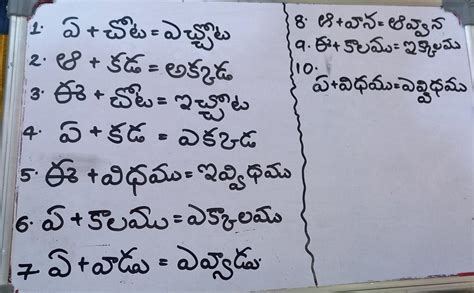 1. ఏ + చోట = ఎచ్చోట
2. ఆ + కడ = అక్కడ
3. ఈ + చోట = ఇచ్చోట
4. ఏ + కడ = ఎక్కడ
5. ఈ + విధము = ఇవ్విధము
6. ఏ + కాలము = ఎక్కాలము
7 ఏ + వాడు = ఎవ్వాడు
8. ఆ + వాన = ఆవ్వాన
9. ఈ + కాలము = ఇక్కాలము
10.
ఏ + విధము = ఎవ్విధము